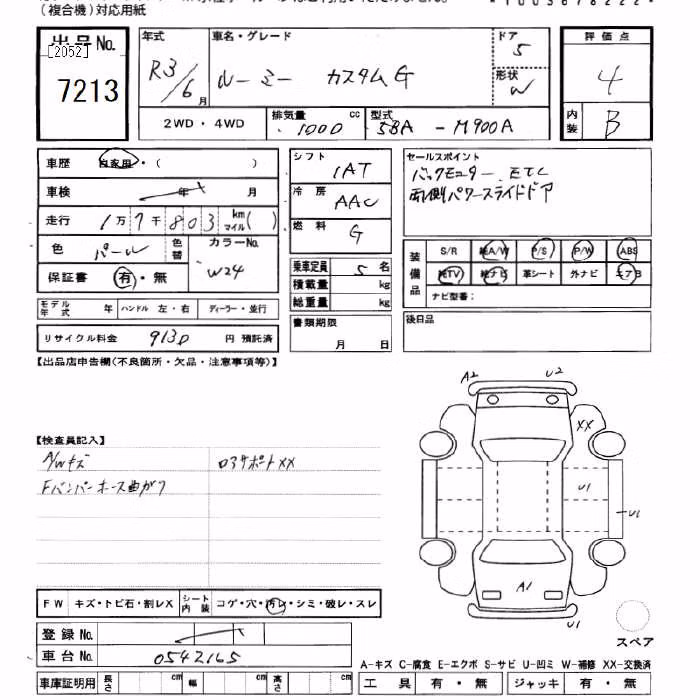 (複合機)対応用紙
出品No.
[2052]
7213
年式
R3/6月
車名・グレード
ルーミー カスタムG
ドア
5
形状
W
評価点
4
内装
B
2WD・4WD
排気量 1000 cc
型式 5BA - M900A
車歴 自家用・( )
車検 年 月
走行 1万7千803 km マイル( )
色 パール
色替
カラーNo.
W24
保証書 有・無
モデル年式 年
ハンドル 左・右
ディーラー・並行
リサイクル料金 9130 円 預託済
シフト 1AT
冷房 AAC
燃料 G
乗車定員 5 名
積載量 kg
総重量 kg
書類期限
月 日
セールスポイント
バックモニター、ETC
両側パワースライドドア
装備品
S/R 純A/W P/S P/W ABS
純TV 純ナビ 革シート 外ナビ エアB
ナビ型番:
後日品
【出品店申告欄(不良箇所・欠品・注意事項等)】
【検査員記入】
A/Wキズ
ロアサポートXX
Fバンパーホース曲がり
A2
U2
XX
U1
U1
A1
U1
スペア
FW キズ・トビ石・割レX
シート内装 コゲ・穴・汚レ・シミ・破レ・スレ
登録No.
車台No. 0542165
A-キズ C-腐食 E-エクボ S-サビ U-凹ミ W-補修 XX-交換済
車庫証明用 長さ cm 幅 cm 高さ cm
工具 有・無 ジャッキ 有・無